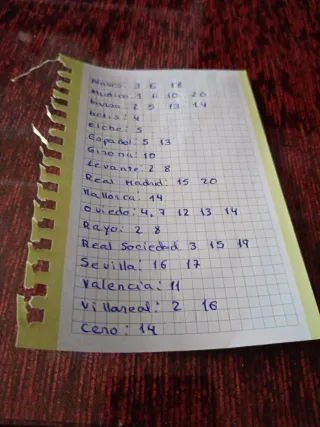 Alaves: 3 6 18
Atletico: 1 6 10 20
barsa: 2 5 13 14
betis: 4
Elche: 5
Español: 5 13
Girona: 10
Levante: 2 8
Real Madrid: 15 20
Mallorca: 14
Oviedo: 4, 7 12 13 14
Rayo: 2 8
Real Sociedad 3 15 19
Sevilla: 16 17
Valencia: 11
Villareal: 2 16
Cero: 14